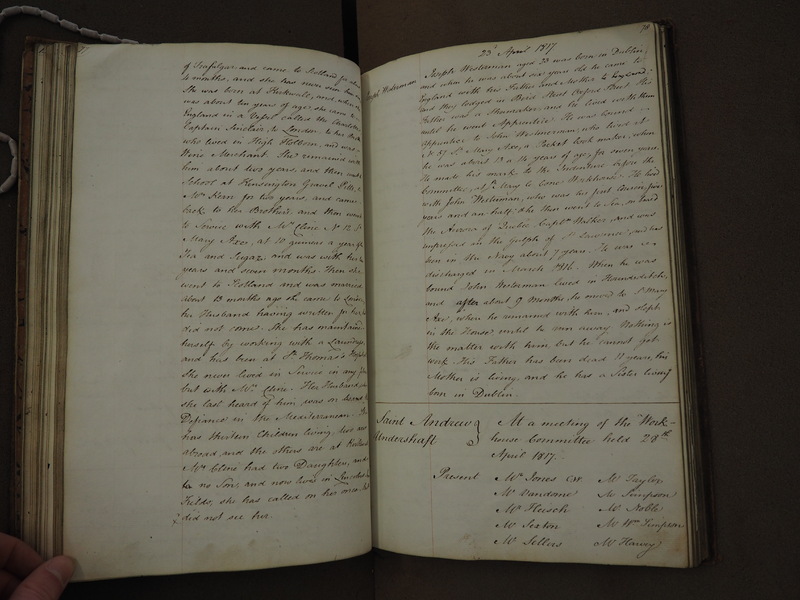 of Trafalgar and came to Scotland for about
4 months, and she has never seen him
She was born at Kirkwall, and when she
was about ten years of age, she came to
England in a Vessel called the
Captain Sinclair, to London, to her Brother
who lived in High Holborn, and was a
Wine Merchant. She remained with
him about two years, and then went to
School at Kensington Gravel Pitts,
Mrs Kern for two years, and came
back to her Brother, and then went
to Service with Mrs Cline No 12 St
Mary Axe, at 10 guineas a year
Tea and Sugar, and was with her
years and seven months. Then she
went to Scotland and was married
about 13 months ago she came to London
her Husband having written for her
did not come. She has maintained
himself by working with a Laundress,
and has been at St Thomas's Hospital
She never lived in Service in any place
but with Mrs Cline. Her Husband,
she last heard of him, was on board
Defiance in the Mediterranean.
has thirteen Children living, two are
abroad, and the others are at Kirkwall
Mrs Cline had two Daughters, and
no Son, and now lives in Lincolns
Fields, she has called on her once
did not see her.
78
23d April 1817
Joseph Westerman
Joseph Westerman aged 23 was born in Dublin,
and when he was about six years old he came to
England with his Father and Mother
and they lodged in Bird Street Oxford Street His
Father was a Shoemaker, and he lived with them
until he went Apprentice. He was bound
apprentice to John Westerman, who lived at
No 57 St Mary Axe, a Pocket book maker, when
he was about 13 or 14 years of age, for seven years.
He made his mark to the Indenture before the
Committee, at St Mary le bone Workhouse. He lived
with John Westerman, who was his first Cousin, four
years and an half, & he then went to Sea, on board
the Aurora of Quebec, Captn Walker, and was
impressed in the gulph of St Lawrence, and has
been in the Navy about 7 years. He was
discharged in March 1816. When he was
bound John Westerman lived in Houndsditch,
and after about 9 months he moved to St Mary
Axe, when he remained with him, and slept
in the House until he run away Nothing is
the matter with him, but he cannot get
work His Father has been dead 11 years, his
Mother is living, and he has a Sister living
born in Dublin.
Saint Andrew
Undershaft
At a meeting of the Work-
house Committee held 28th
April 1817.
Present
Mr Jones CW
Mr Taylor
Mr Vandome
Mr Simpson
Mr
Mr Noble
Mr Sexton
Mr Wm Simpson
Mr Sellers
Mr Harvey